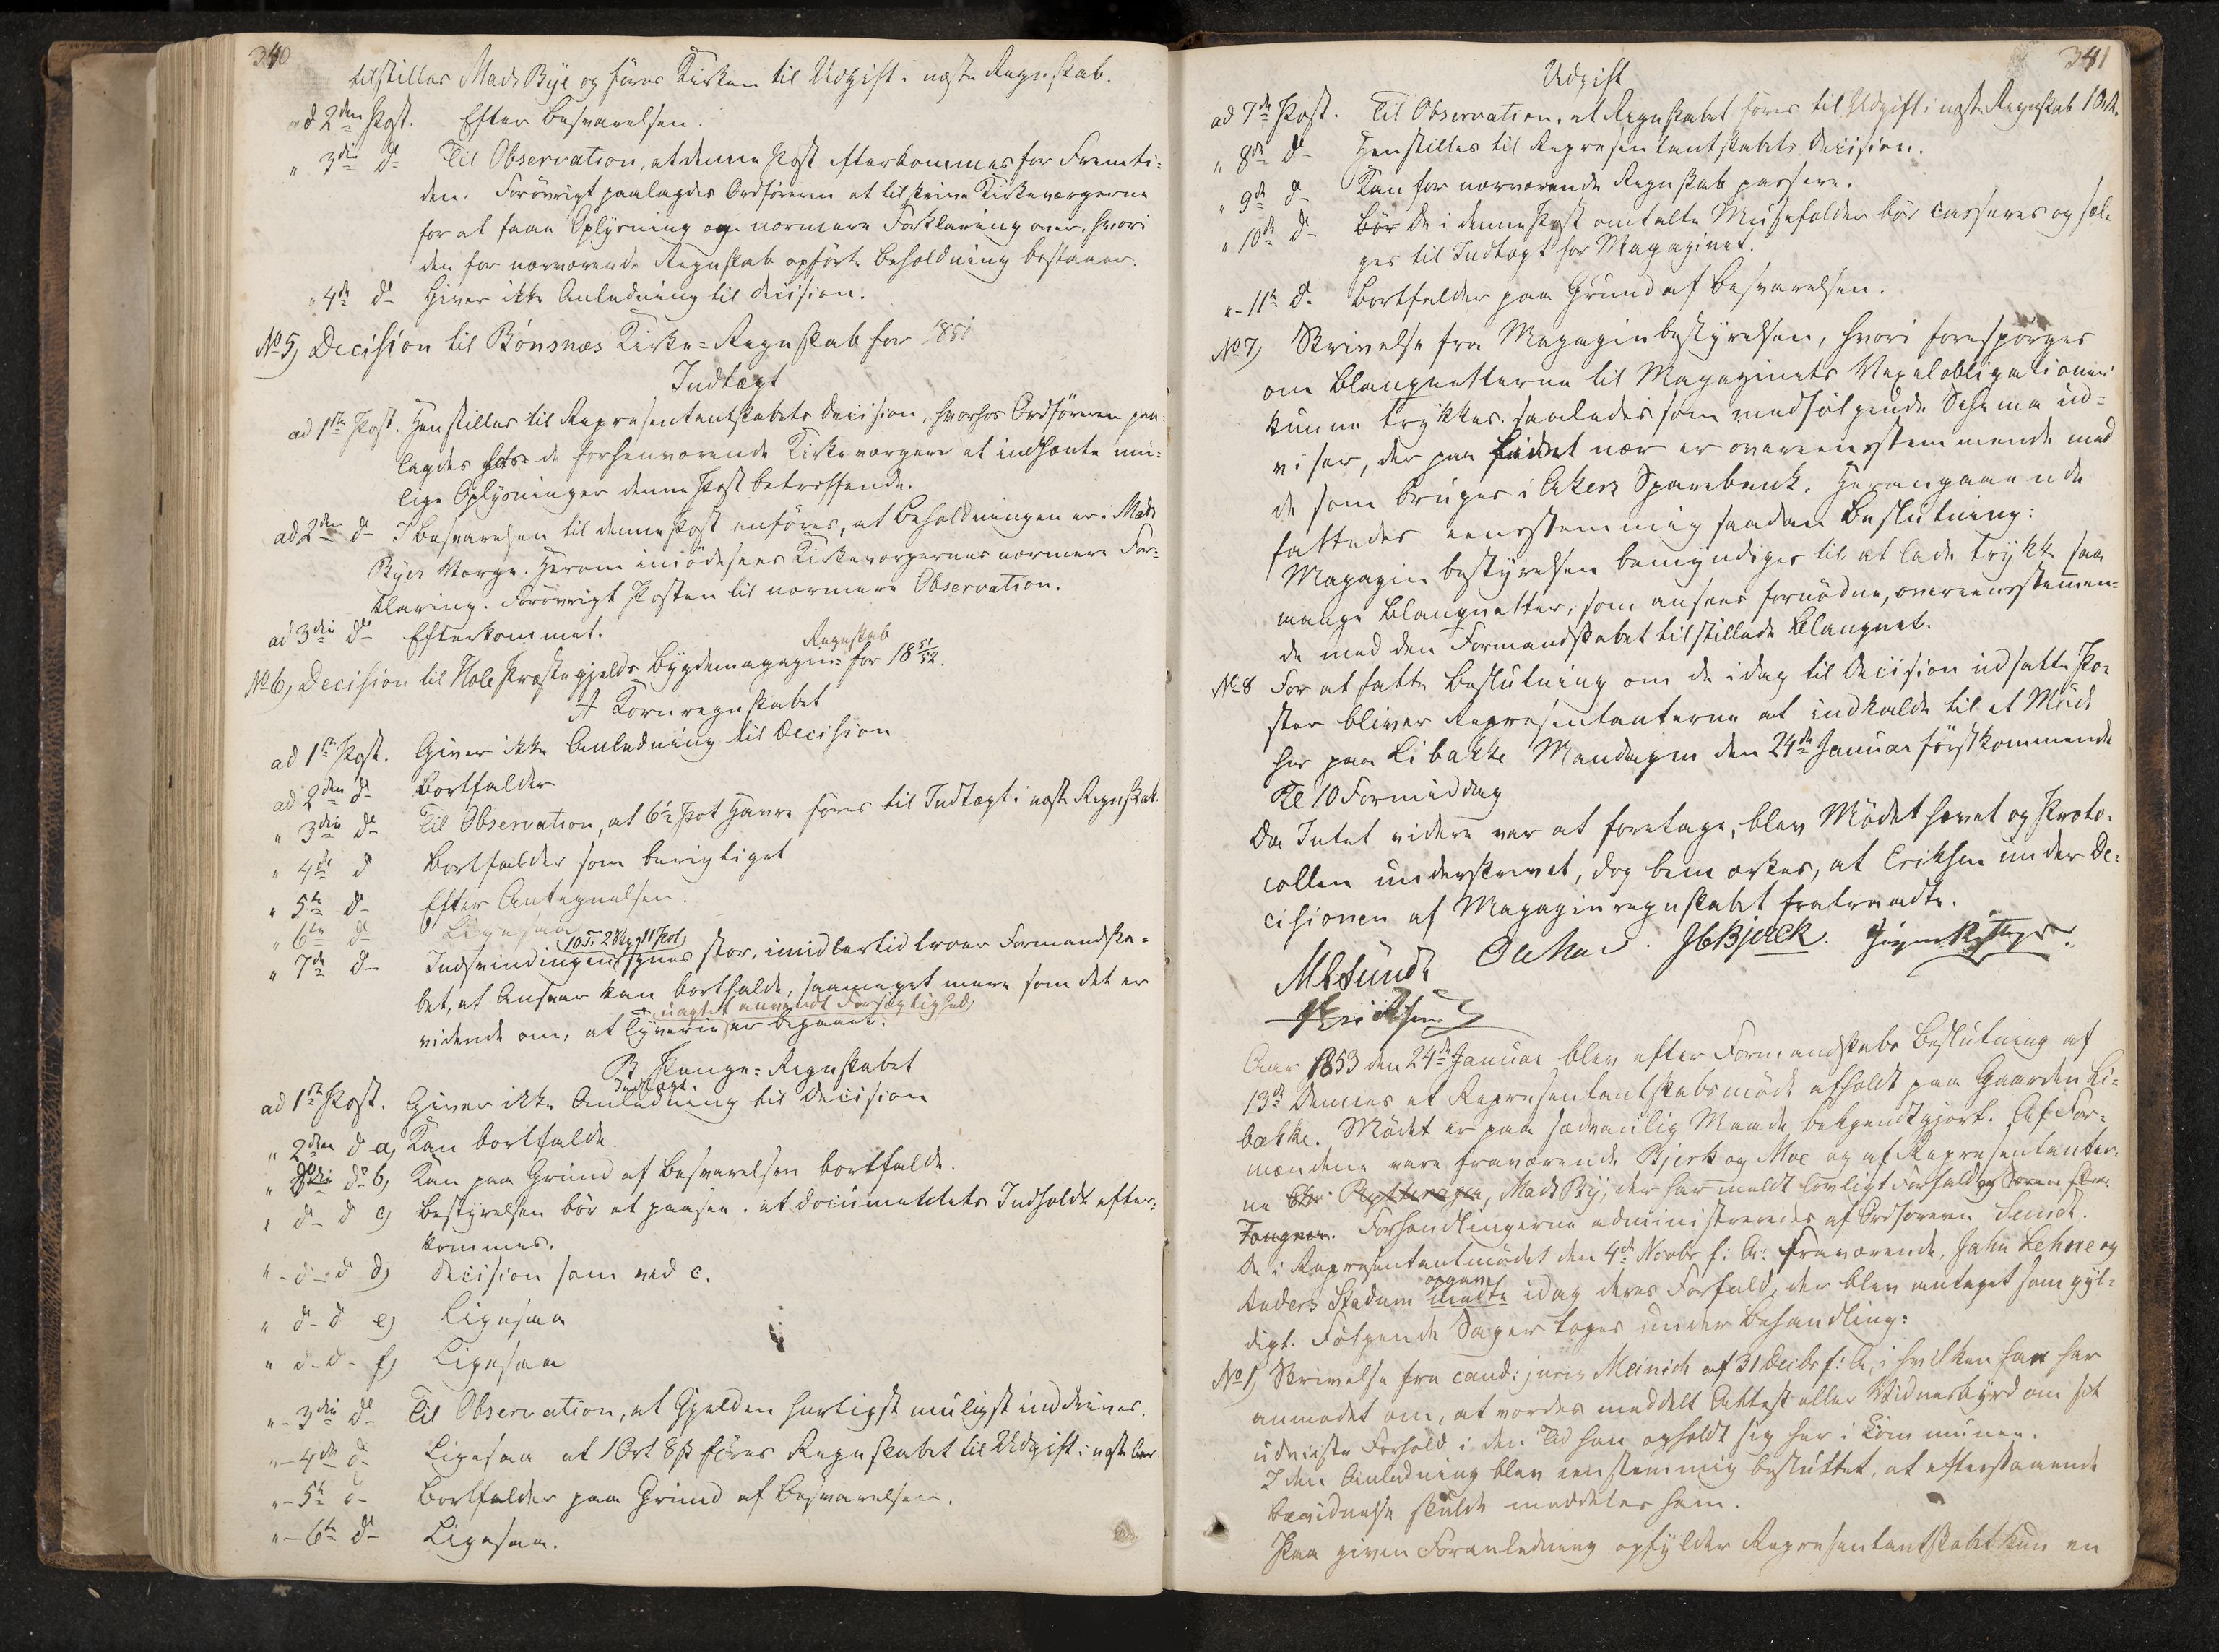 340
tilstilles Mads Bye og föres Kirken til Udgift i næste Regnskab.
ad 2den Post. Efter Besvarelsen.
" 3die do Til Observation, at denne Post efterkommes for Fremti-
den. Forövrigt paalagdes Ordföreren at tilskrive Kirkeværgerne
for at faae Oplysning og nærmere Forklaring over, hvori
den for nærværende Regnskab opförte Beholdning bestaaer.
" 4de do Giver ikke Anledning til Decision.
No 5, Decision til Bönsnæs Kirke-Regnskab for 1851
Indtægt
ad 1ste Post. Henstilles til Repræsentantskabets Decision, hvorhos Ordföreren paa-
lagdes hos de forhenværende Kirkeværgere at indhente mu-
lige Oplysninger denne Post betreffende.
ad 2den do I Besvarelsen til denne Post anföres, at Beholdningen er i Mads
Byes Værge. Herom imödesees Kirkeværgernes nærmere For-
klaring. Forövrigt Posten til nærmere Observation.
ad 3die do Efterkommet.
Regnskab
No 6, Decision til Hole Præstegjelds Bygdemagazin- for 18 51/52.
A Kornregnskabet
ad 1ste Post. Giver ikke Anledning til Decision
ad 2den do Bortfalder
" 3die do Til Observation, at 6 1/2 Pot Havre föres til Indtægt i næste Regnskab.
" 4de do Bortfalder som berigtiget
" 5te do Efter Antegnelsen.
" 6te do Ligesaa
10 T. 2 Skp. 11 Pot,
" 7de do Indsvindingen synes stor, imidlertid troer Formandska-
bet, at Ansvar kan bortfalde, saameget mere som det er
uagtet anvendt Forsigtighed,
vidende om, at Tyverie er begaaet.
B Penge-Regnskabet
Indtægt.
ad 1ste Post. Giver ikke Anledning til Decision
" 2den do a, Kan bortfalde.
" do b, Kan paa Grund af Besvarelsen bortfalde.
" do do c, Bestyrelsen bör at paasee, at Documentets Indholdt efter-
kommes.
" do do d, Decision som ved c.
" do do e, Ligesaa
" do do f, Ligesaa
" 3die do Til Observation, at Gjelden hurtigst muligst inddrives.
" 4de do Ligesaa at 1 Ort 8 ß föres Regnskabet til Udgift i næste Aar
" 5te do Bortfalder paa Grund af Besvarelsen.
" 6te do Ligesaa.
341
Udgift
ad 7de Post. Til Observation, at Regnskabet föres til Udgift i næste Regnskab 1 Ort.
" 8de do Henstilles til Repræsentantskabets Decision.
" 9de do Kan for nærværende Regnskab passere.
" 10de do Bör De i denne Post omtalte Musefælder bör casseres og sæl-
ges til Indtægt for Magazinet.
" 11te do Bortfalder paa Grund af Besvarelsen.
No 7, Skrivelse fra Magazinbestyrelsen, hvori foresporges
om Blanquetterne til Magazinets Vexelobligationer
kunne trykkes saaledes som medfölgende Schema ud-
viser, der paa Lidet nær er overeensstemmende med
de som bruges i Akers Sparebank. Herangaaende
fattedes eensstemmig saadan Beslutning:
Magazinbestyrelsen bemyndiges til at lade trykke saa
mange Blanquetter, som ansees fornödne, overeensstemmen-
de med den Formandskabet tilstillede Blanquet.
No 8 For at fatte Beslutning om de idag til Decision udsatte Po-
ster bliver Repræsentanterne at indkalde til et Möde
her paa Libakke Mandagen den 24de Januar förstkommende
Kl 10 Formiddag
Da Intet videre var at foretage, blev Mödet hævet og Proto-
collen underskrevet, dog bemærkes, at Eriksen under De-
cisionen af Magazinregnskabet fratraadte.
M Sundt O Moe. J C Bjerck.
Eriksen
Aar 1853 den 24de Januar blev efter Formandskabs Beslutning af
13de Dennes et Repræsentantskabsmöde afholdt paa Gaarden Li-
bakke. Mödet er paa sædvanlig Maade bekjendtgjort. Af For-
mændene vare fraværende Bjerk og Moe og af Repræsentanter-
ne Mads By, der har meldt lovligt Forfald og Sören
Fougner. Forhandlingerne administreredes af Ordföreren Sundt.
De i Repræsentantmödet den 4de Novbr f: A: fraværende, Jahn Lehne og
opgave
Anders Stadum meldte idag deres Forfald, der blev antaget som gyl-
digt. Fölgende Sager toges under Behandling:
No 1, Skrivelse fra cand: juris Meinich af 31 Decbr f: A, i hvilken han har
anmodet om, at vordes meddelt Attest eller Vidnesbyrd om sit
udviste Forhold i den Tid han opholdt sig her i Kommunen.
I den Anledning blev eenstemmig besluttet, at efterstaaende
Bevidnelse skulde meddeles ham.
Paa given Foranledning opfylder Repræsentantskabet kun en